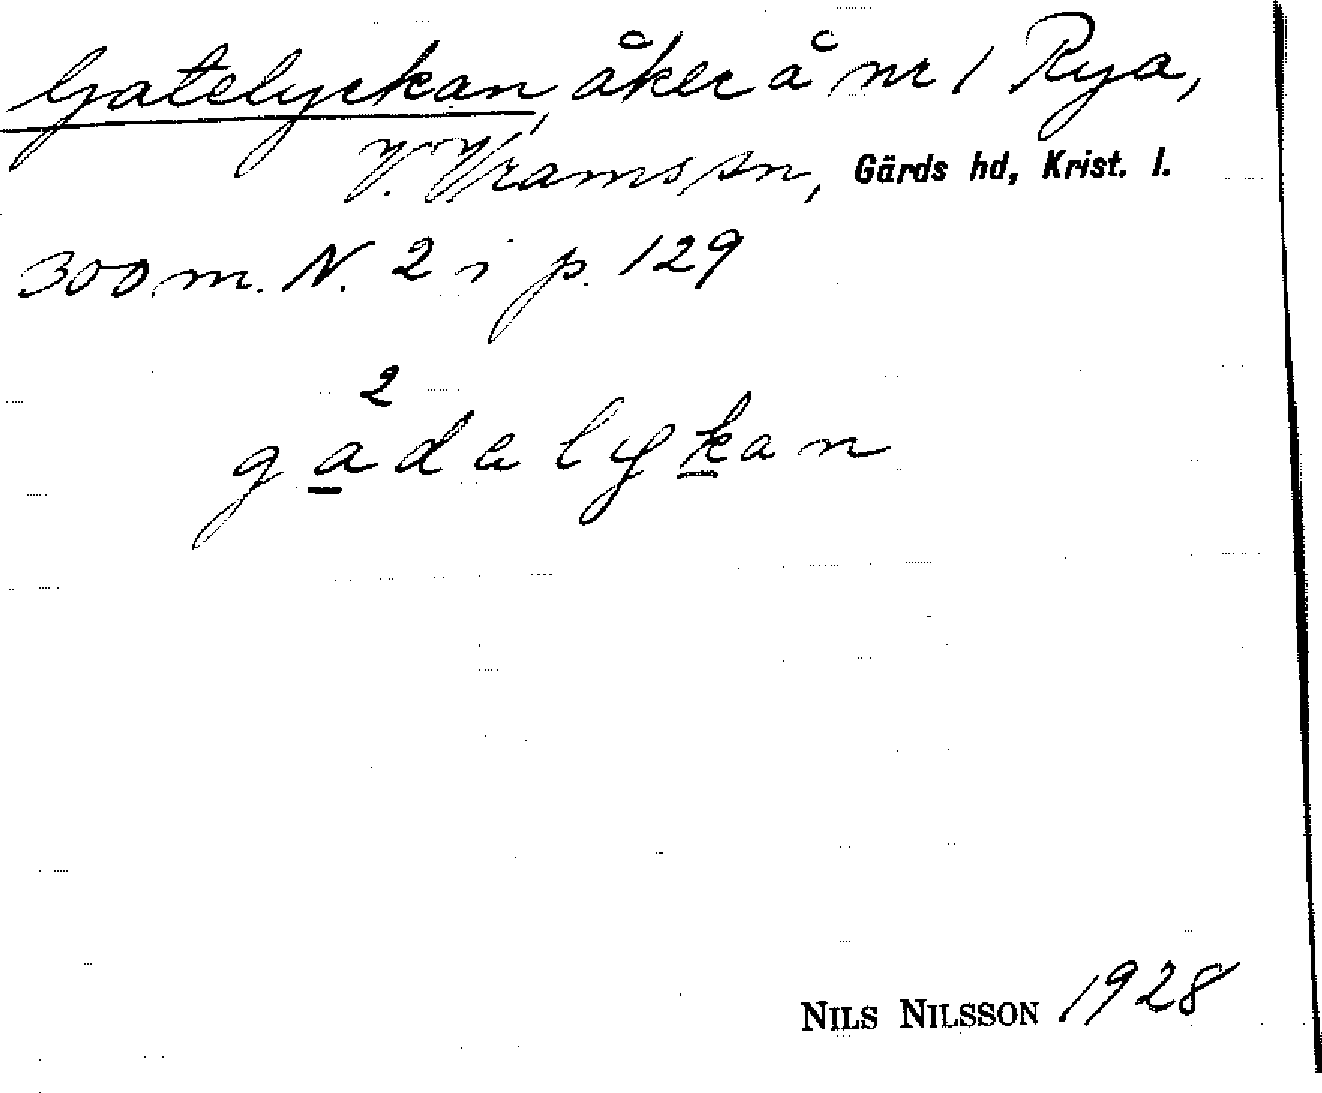 Gatelyckan, åker å nr 1 Rya,
V. Vrams sn, Gärds hd, Krist. l.
300 m. N. 2 i p. 129
2
gadalykan
NILS NILSSON 1928